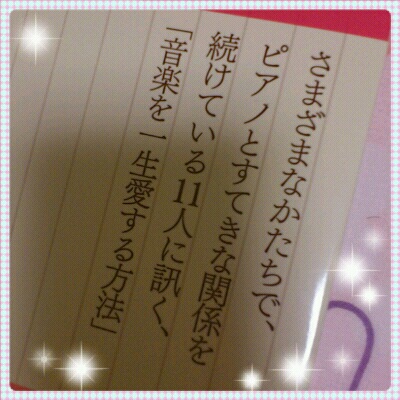 さまざまなかたちで、
ピアノとすてきな関係を
続けている11人に訊く、
「音楽を一生愛する方法」